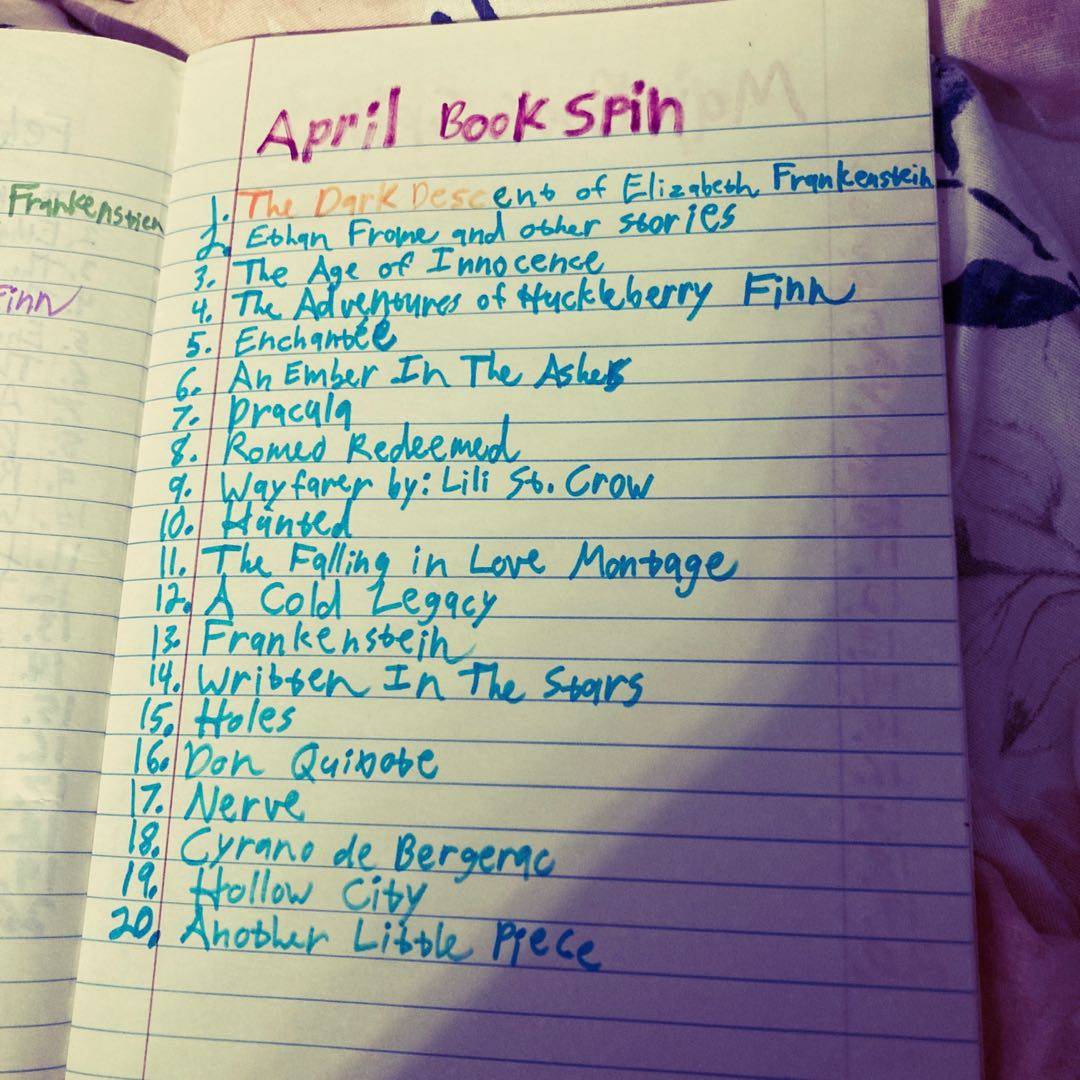 Frankenstien
Finn
April Book Spin
1. The Dark Descent of Elizabeth Frankenstein
2. Ethan Frome and other stories
3. The Age of Innocence
4. The Adventures of Huckleberry Finn
5. Enchantée
6. An Ember In The Ashes
7. Dracula
8. Romeo Redeemed
9. Wayfarer by: Lili St. Crow
10. Hunted
11. The Falling in Love Montage
12. A Cold Legacy
13. Frankenstein
14. Written In The Stars
15. Holes
16. Don Quixote
17. Nerve
18. Cyrano de Bergerac
19. Hollow City
20. Another Little Piece